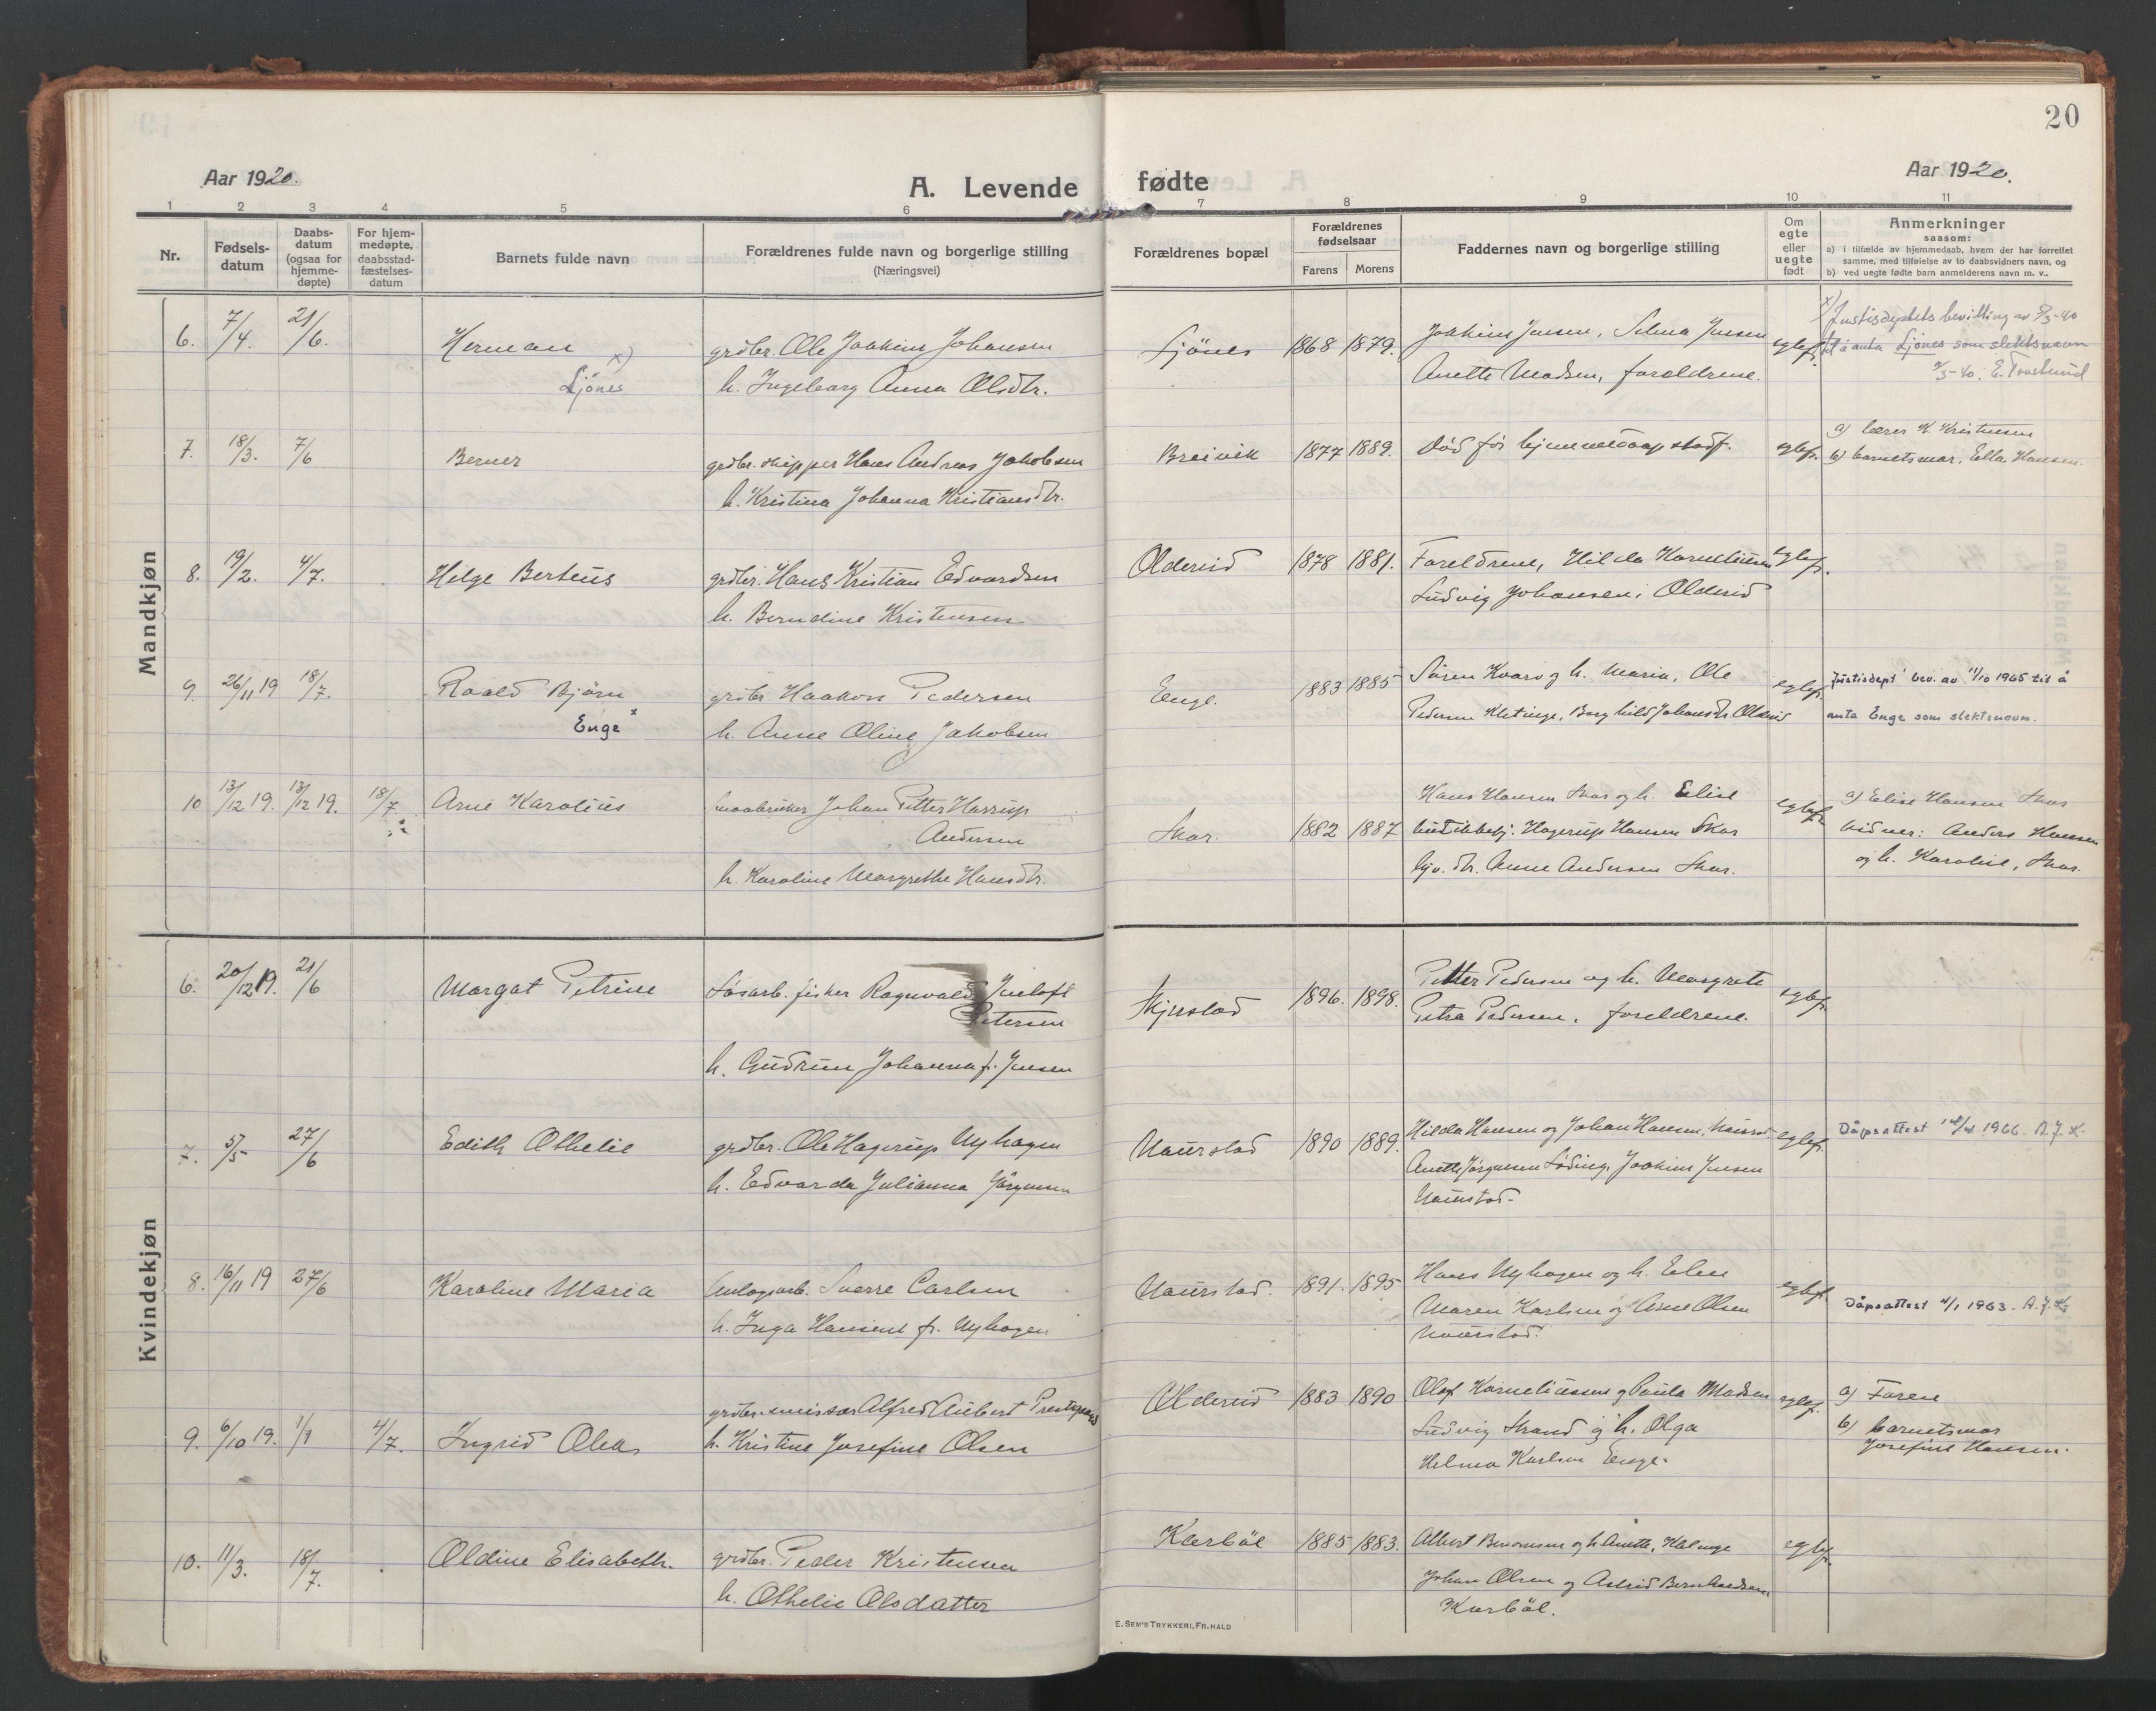 20
Aar 1920.
A. Levende
fødte
Aar 1920.
1 2 3 4 5 6 7 8 9 10 11
Nr.
Fødsels-
datum
Daabs-
datum
(ogsaa for
hjemme-
døpte)
For hjem-
medøpte,
daabsstad-
fæstelses-
datum
Barnets fulde navn
Forældrenes fulde navn og borgerlige stilling
(Næringsvei)
Forældrenes bopæl
Forældrenes
fødselsaar
Farens
Morens
Faddernes navn og borgerlige stilling
Om
egte
eller
uegte
født
Anmerkninger
saasom:
a) i tilfælde av hjemmedaab, hvem der har forrettet
samme, med tilføielse av to daabsvidners navn, og
b) ved uegte fødte barn anmelderens navn m. v..
Mandkjøn
6. 7/4. 21/6.
Herman x)
Ljønes
grdbr. Ole Joakim Johansen
h. Ingeborg Anna Olsdtr.
Ljönes 1868 1879.
Joakim Jensen, Selma Jensen
Anette Madsen, foreldrene.
egtef.
x) Justisdeptets bevilling av
til å anta Ljønes som slektsnavn
E. Trostund
7. 18/3. 7/6
Berner
grdbr. skipper Hans Andreas Jakobsen
h. Kristina Johanna Kristiansdtr.
Breivik 1877 1889.
Död før hjemmedaap stadf.
egtef.
a) lærer K Kristensen
b) barnets mor. Ella Hansen.
8. 19/2. 4/7.
Helge Berteus
grdbr. Hans Kristian Edvardsen
h. Berndine Kristensen
Oldereid 1878 1881.
Foreldrene, Hilda Korneliussen
Ludvig Johansen, Oldereid
egtef.
9. 26/11 19 18/7.
Roald Bjørn
Enge x
grdbr. Haakon Pedersen
h. Anne Oline Jakobsen
Enge. 1883 1885
Sören Kvarv og h. Maria, Ole
Pedersen Kletinge, Borghild Johansdtr. Oldereid
egtef.
Justisdept' bev. av 11/10 1965 til å
anta Enge som slektsnavn.
10 13/12 19. 13/12 19. 18/7.
Arne Karolius
smaabruker Johan Petter Harrup
Andersen
h. Karoline Margrethe Hansdtr.
Skar. 1882 1887
Hans Hansen Skar og h. Elise
butikkbetj. Hagerup Hansen Skar
hjv. dtr. Anne Andersen Skar.
egtef.
a) Elise Hansen Skar
vidner: Anders Hansen
og h. Karoline, Skar.
Kvindekjøn
6. 20/12 19. 21/6
Margot Petrine
Løsarb. fisker Ragnvald Jentoft
Petersen
h. Gudrun Johanna f. Jensen
Skjerstad 1896. 1898.
Petter Pedersen og h. Margrete
Petra Pedersen, foreldrene.
egtef.
7. 5/5 27/6
Edith Othelie
grdbr. Ole Hagerup Nyhagen
h. Edvarda Julianna Jörgensen
Naurstad 1890 1889.
Hilda Hansen og Johan Hansen, Naurst.
Anette Jörgensen Löding, Joakim Jensen
Naurstad.
egtef.
Dåpsattest 18/4 1966. A.J.K.
8. 16/11 19 27/6
Karoline Maria
Anlægsarb. Sverre Carlsen
h. Inga Hansine f. Nyhagen
Naurstad. 1891. 1895
Hans Nyhagen og h. Elen
Maren Karlsen og Arne Olsen
Naurstad.
egtef.
Dåpsattest 4/1 1963. A.J.K
9. 6/10 19. 1/1 4/7.
Ingrid Olea
grdbr. emissær Alfred Aubert Prestegaard
h. Kristine Josefine Olsen
Oldereid 1883 1890
Olaf Korneliussen og Paula Madsen
Ludvig Strand og h. Olga
Helma Karlsen Enge.
egtef.
a) Faren
b) barnets mor
Josefine Hansen.
10. 11/3. 18/7.
Oldine Elisabeth.
grdbr. Peder Kristensen
h. Othelie Olsdatter
Karböl 1885 1883.
Albert Benonisen og h. Anette, Kletinge
Johan Olsen og Astrid Bernhardsen
Karböl.
egtef.
E. SEM'S TRYKKERI, FR.HALD